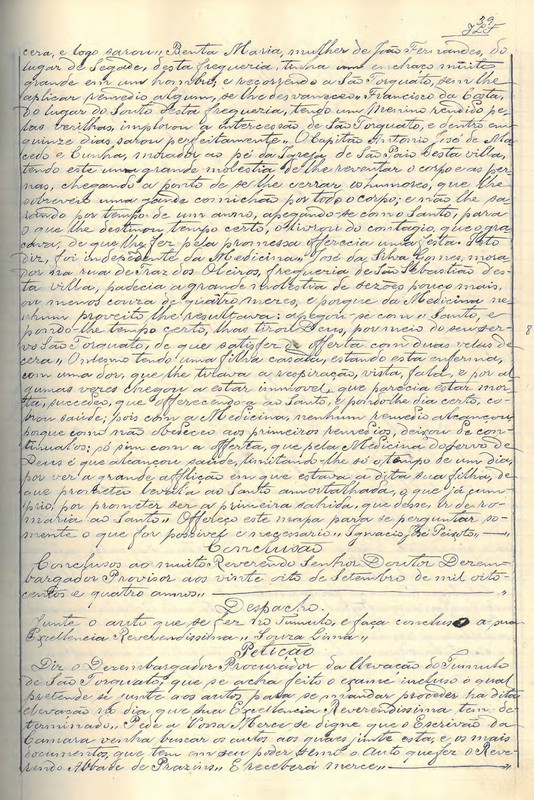 cera, e logo sarou,, Benta Maria, mulher de João Fernandes, do
lugar de Segade, desta freguesia, tinha um enchaço muito
grande em um hombro, e recorrendo a São Torquato, sem lhe
aplicar remedio algum, se lhe desvaneceo,, Francisco da Costa,
do lugar do Santo desta freguesia, tendo um menino rendido pe-
las verilhas, implorou a intercessão de São Torquato, e dentro em
quinze dias sarou perfeitamente,, O Capitão Antonio José de Ma-
cedo e Cunha, morador ao pé da Igreja de São Paio desta villa,
tendo este uma grande molestia de lhe reventar o corpo e as per-
nas, chegando a ponto de se lhe cerrar os humores, que lhe
sobreveio uma grande comichão por todo o corpo; e não lhe sa-
rando por tempo de um anno, apegando-se com o Santo, para
o que lhe destinou tempo certo, o livrou do contagio, que o gra-
cava, de que lhe fez pela promessa offerecia uma festa. Isto
diz, foi independente da Medicina,, José da Silva Gomes, mora-
dor na rua de Traz dos Oleiros, freguesia de São Sebastião des-
ta villa, padecia a grande molestia de sezões pouco mais,
ou menos couza de quatro mezes, e porque da Medicina ne-
nhum proveito lhe resultava: apegou-se com o Santo, e
pondo-lhe tempo certo, lhas tirou Deus, por meio do seu ser-
vo São Torquato, de que satisfez a offerta com duas velas de
cera,, O mesmo tendo uma filha casada, estando esta enferma,
com uma dor, que lhe tulava a respiração, vista, fala, e por al-
gumas vezes chegou a estar immovel, que parecia estar mor-
ta, succedeo, que offerecendo-a ao Santo, e pondo-lhe dia certo, co-
brou saude; pois com a Medicina, nenhum remedio alcançou
porque como não obedeceo aos primeiros remedios, deixou de con-
tinual-os; só sim com a offerta, que pela Medicina do servo de
Deus é que alcançou saude, limitando-lhe só o tempo de um dia,
por ver a grande afflição em que estava a dita sua filha, de
que prometeo leval-a ao Santo amortalhada, o que já cum-
prio, por prometer ser a primeira sahida, que désse, ir de ro-
maria ao Santo,, Offereço este mapa para se perguntar so-
mente o que for possivel e necessario,, Ignacio José Peixoto,,
Conclusão
Conclusos ao muito Reverendo Senhor Doutor Desem-
bargador Provisor aos vinte oito de Setembro de mil oito-
centos e quatro annos,,
Despacho.
Junte o auto que se fez no Tumulo, e faça concluso a sua
Excellencia Reverendissima,, Souza Lima,,
Petição
Diz o Desembargador Procurador da Elevação do Tumulo
de São Torquato, que se acha feito o exame incluso o qual
pretende se junte aos autos para se mandar proceder na dita
elevação no dia, que Sua Excellencia Reverendissima tem de-
terminado,, Pede a Vossa Merce se digne que o Escrivão da
Camara venha buscar os autos aos quaes junte esta, e os mais
documentos, que tem em seu poder o Auto que fez o Reve-
rendo Abbade de Prazins,, E receberá merce,,